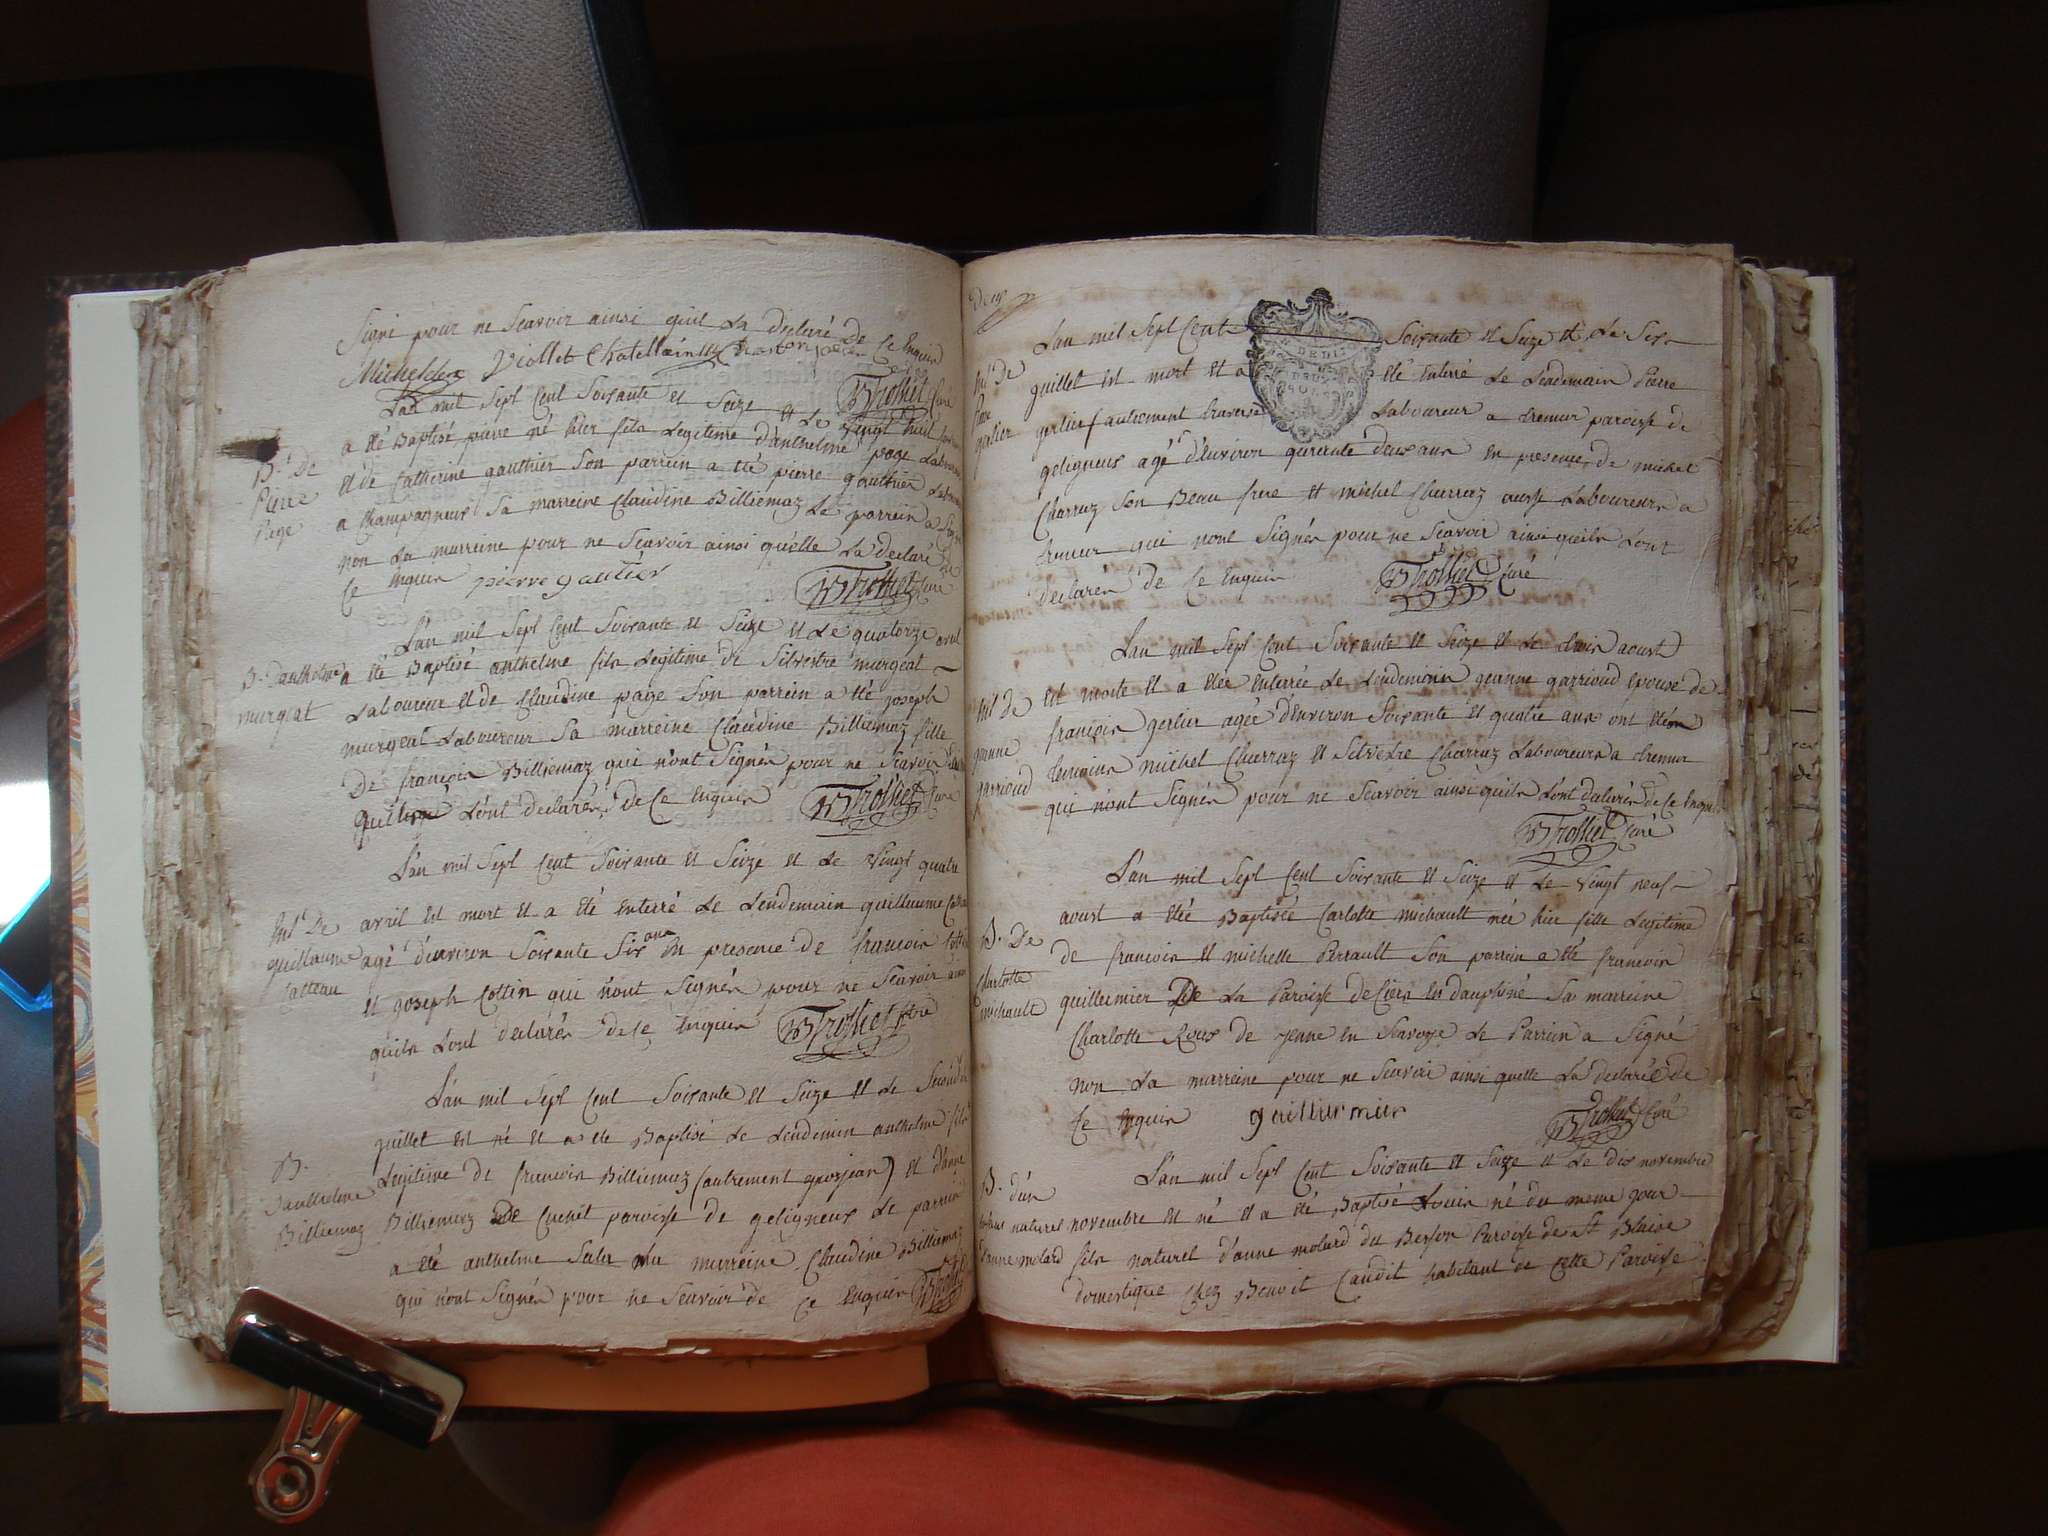 Signé pour ne Scavoir ainsi quil La déclaré de Ce Enquis
Viollet Chatellain
Trolliet Curé
L'an mil Sept Cent Soixante et Seize et Le vingt huit
B. De
Pierre
Page
a été Baptisé pierre né hier fils Legitime d'anthelme page Laboureur
et de Catherine gauthier Son parrein a été pierre gauthier Laboureur
a Champagneux Sa marreine Claudine Billiemaz Le parrein a Signé
non La marreine pour ne Scavoir ainsi qu'elle La declaré de
Ce Enquis pierre gautier Trolliet Curé
L'an mil Sept Cent Soixante et Seize et Le quatorze avril
B. d'anthelme
murgeat
a été Baptisé anthelme fils Legitime de Silvestre murgeat
Laboureur et de Claudine page Son parrein a été joseph
murgeat Laboureur Sa marreine Claudine Billiemaz fille
De françois Billiemaz qui n'ont Signés pour ne Scavoir ainsi
L'ont declarés de Ce Enquis Trolliet Curé
L'an mil Sept Cent Soixante et Seize et Le vingt quatre
Ent. De
guillaume
avril est mort et a été Enterré Le Lendemain guillaume
agé d'environ Soixante Six ans En presence de françois
et joseph Cottin qui n'ont Signés pour ne Scavoir ainsi
quils L'ont declarés de Ce Enquis Trolliet
L'an mil Sept Cent Soixante et Seize et Le Second
juillet est né et a été Baptisé Le Lendemin anthelme fils
B.
d'anthelme
Billiemaz
Legitime de françois Billiemaz (autrement grosjean) et d'anne
Billiemaz De Cuchet paroisse de geligneux Le parrein
a été anthelme La marreine Claudine Billiemaz
qui n'ont Signés pour ne Scavoir de Ce Enquis Trolliet
L'an mil Sept Cent Soixante et Seize et Le Six
DEUX SOLS
Ent. De
Pierre
gerlier
juillet est mort et a été Enterré Le Lendemain Pierre
gerlier (autrement Laboureur a Fremur paroisse de
geligneux agé d'Environ quarante deux ans En presence de michel
Charraz Son Beau frere et michel Charraz aussi Laboureurs a
Fremur qui n'ont Signés pour ne Scavoir ainsi quils L'ont
declarés de Ce Enquis Trolliet Curé
L'an mil Sept Cent Soixante et Seize et Le trois aoust
Ent. de
jeanne
garrioud
est morte et a étée Enterrée Le Lendemain jeanne garrioud epouse de
françois gerlier agée d'Environ Soixante et quatre ans ont été
temoins michel Charraz et Silvestre Charraz Laboureurs a Fremur
qui n'ont Signés pour ne Scavoir ainsi quils L'ont declarés de Ce Enquis
Trolliet Curé
L'an mil Sept Cent Soixante et Seize et Le vingt neuf
aoust a étée Baptisée Carlotte michault née hier fille Legitime
B. De
Charlotte
michault
de françois et michelle Perrault Son parrein a été françois
guillermier De La Paroisse de Ciers En dauphiné Sa marreine
Charlotte Roux de yenne en Savoye Le Parrein a Signé
non La marreine pour ne Scavoir ainsi quelle La declaré de
Ce Enquis guillermier Trolliet Curé
L'an mil Sept Cent Soixante et Seize et Le dix novembre
B. d'un
naturel
d'anne molard
novembre est né et a été Baptisé Louis né du meme jour
fils naturel d'anne molard du Paroisse de St Blaise
domestique Chez Benoit Caudit habitant de Cette Paroisse